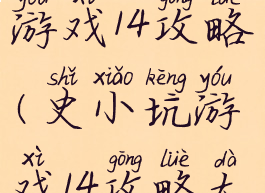 游戏14攻略
shǐ xiǎo kēng yóu
(史小坑游
xì gōng lüè dà
戏14攻略大